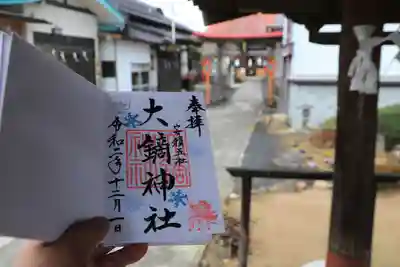 奉拝
大鏑神社
令和二年十二月一日